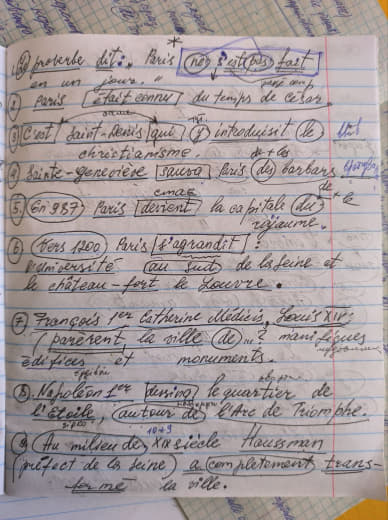 *
1) proverbe dit: „ Paris ne s'est pas fait
passé comp.
en un jour. "
2 Paris était connu du temps de César.
3 C'est Saint-Denis qui y introduisit le
christianisme.
de + les
4 Sainte-geneviève sauva Paris des barbars
de + le
5. En 987 Paris devient la capitale du
royaume.
6 Vers 1200 Paris s'agrandit :
université au sud de la Seine et
le château-fort le Louvre.
7 François 1er Catherine Médicis, Louis XIV:
parèrent la ville de ... ? manifiques
édifices et monuments.
8. Napoléon 1er dessina le quartier de
l'étoile, autour de l'Arc de Triomphe.
10+9
9 Au milieu de XIX siècle Haussman
(préfect de la seine) a complètement trans-
formé la ville.